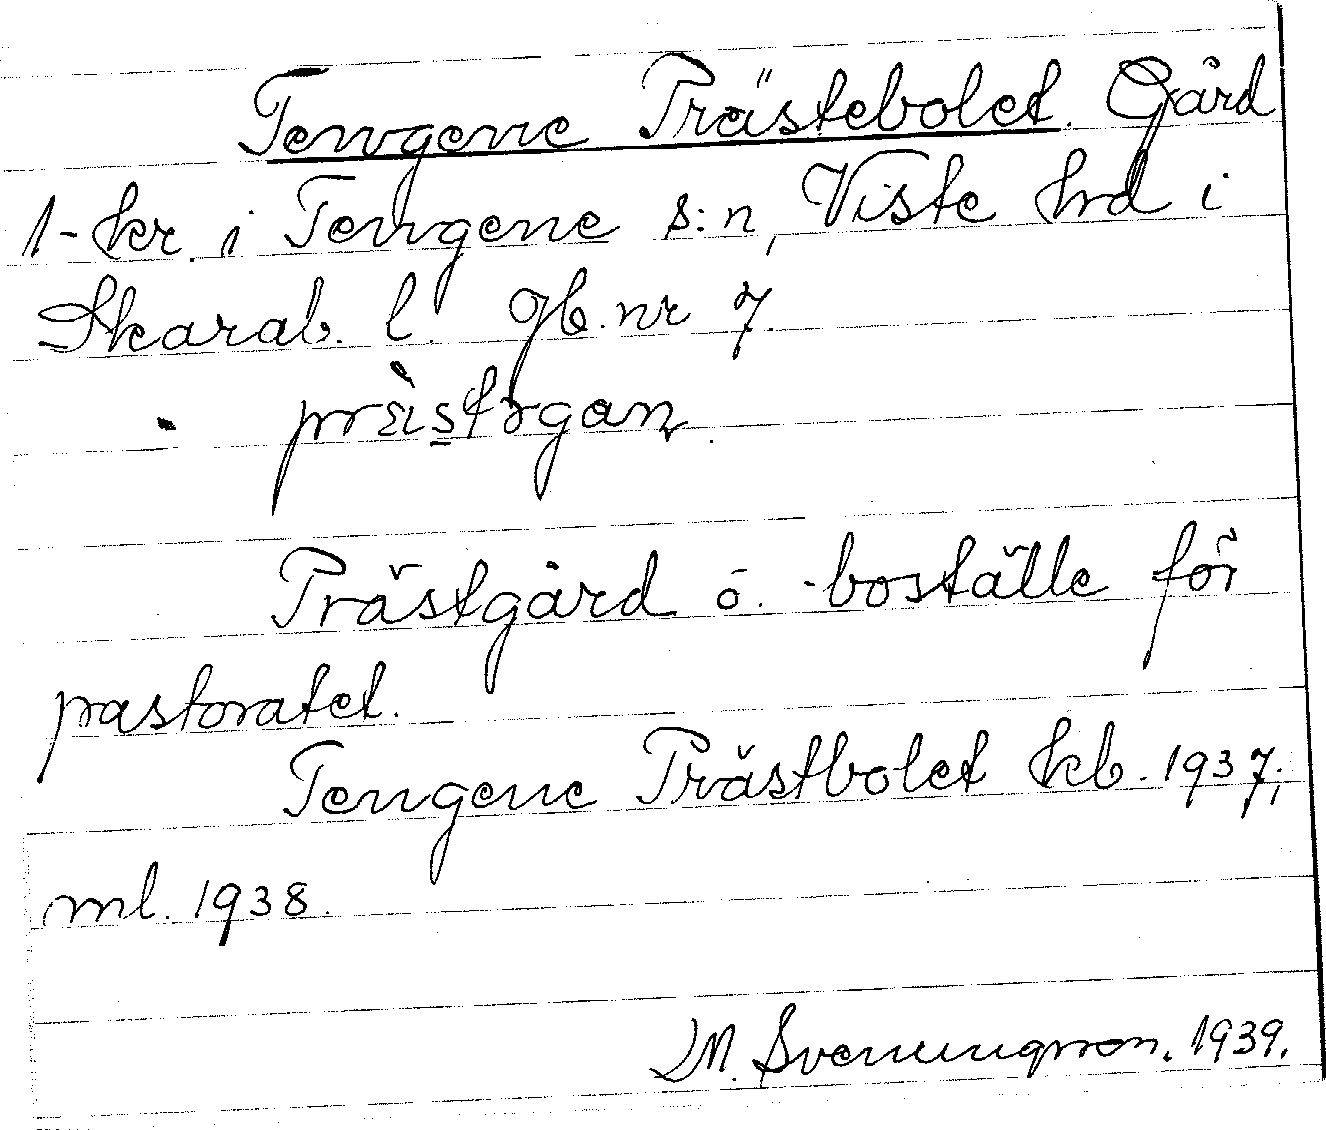 Tengene Prästebolet. Gård
1-kr. i Tengene s:n, Viste hrd i
Skarab. l. gb. nr 7.
prä̀stgan.
Prästgård o. -boställe för
pastoratet.
Tengene Prästbolet kb. 1937;
ml. 1938.
M. Svenungsson. 1939.